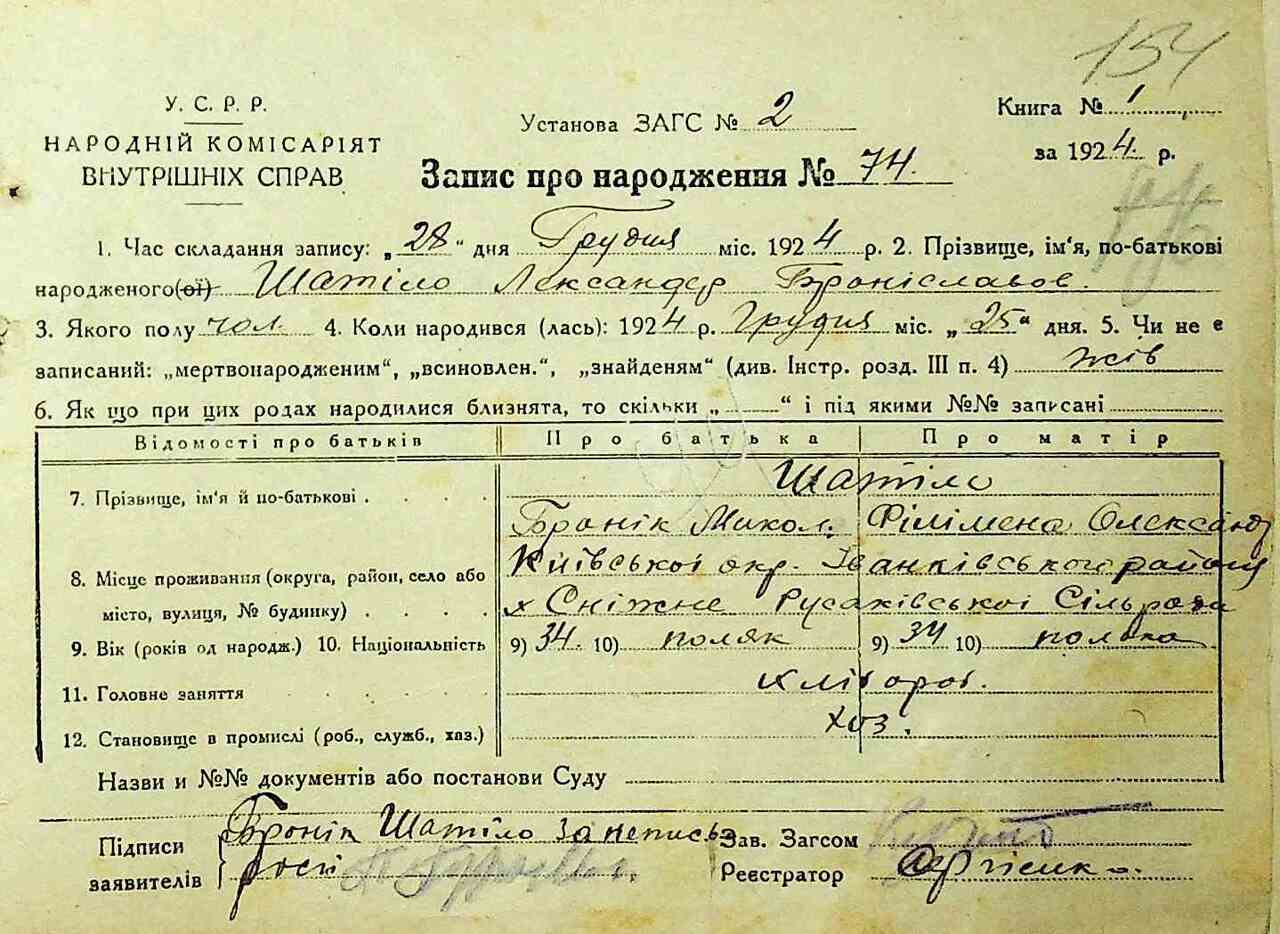 154
У. С. Р. Р.
НАРОДНІЙ КОМІСАРІЯТ
ВНУТРІШНІХ СПРАВ
Установа ЗАГС № 2
Книга № 1
за 1924 р.
Запис про народження № 74.
1. Час складання запису: „28“ дня Грудня міс. 1924 р. 2. Прізвище, ім'я, по-батькові
народженого(ої) Шатіло Лександер Броніславов.
3. Якого полу чол. 4. Коли народився (лась): 1924 р. Грудня міс. „25“ дня. 5. Чи не є
записаний: „мертвонародженим“, „всиновлен.“, „знайденям“ (див. Інстр. розд. III п. 4) жів
6. Як що при цих родах народилися близнята, то скільки „ “ і під якими №№ записані
Відомості про батьків Про батька Про матір
7. Прізвище, ім'я й по-батькові . . . . Шатіло
Бронік Микол. Філімена Олександ
8. Місце проживання (округа, район, село або Київської окр. Іванківського району
місто, вулиця, № будинку) . . . . х Сніжне Русаківської Сільради
9. Вік (років од народж.) 10. Національність 9) 34. 10) поляк 9) 34 10) полька
11. Головне заняття . . . . хліbороb.
12. Становище в промислі (роб., служб., хаз.) хоз.
Назви и №№ документів або постанови Суду
Підписи
заявителів
Бронік Шатіло за неписьм
Зав. Загсом
Реєстратор Сергієнко.